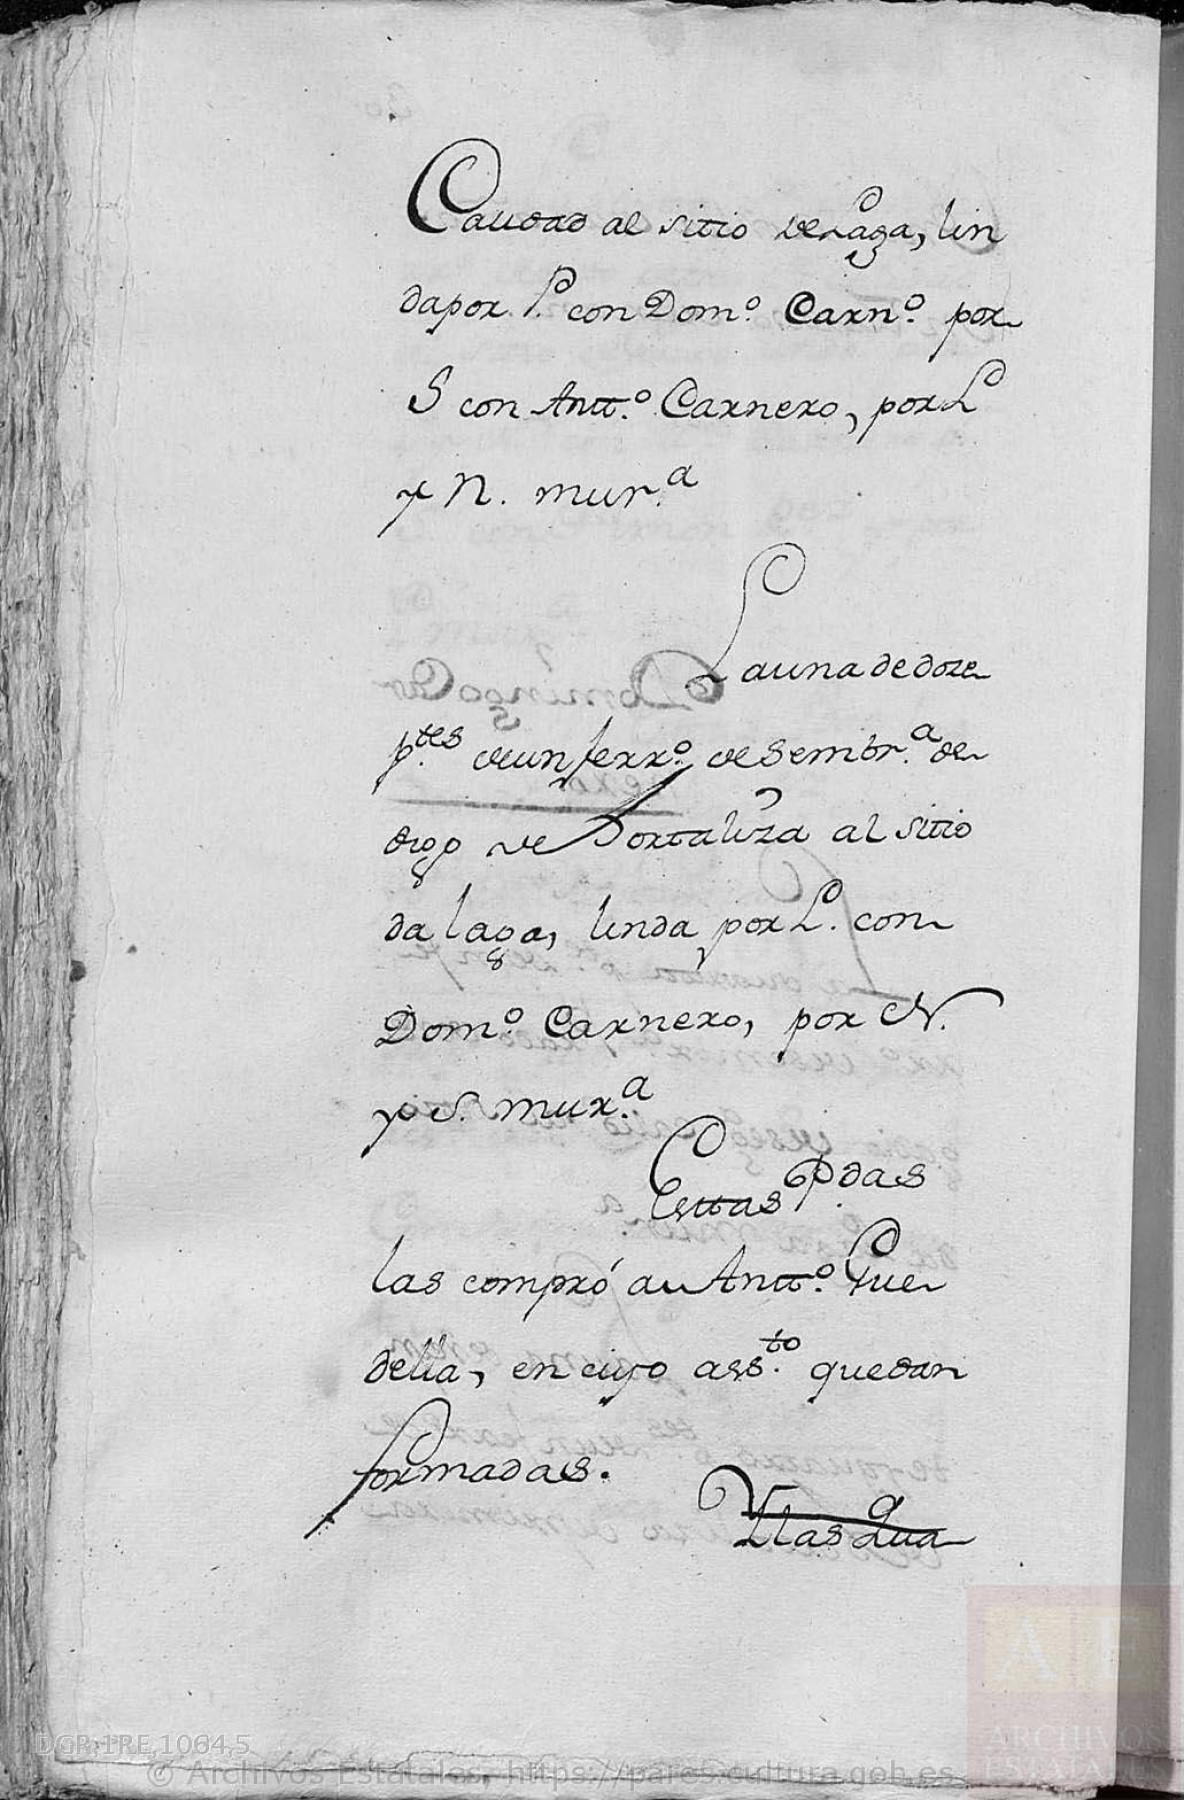 Caudad al sitio de Laga, lin
da por P. con Dom.º Carn.º por
S con Antt.º Carnero, por L
y N. mur.ª
La una de doze
p.tes de un ferr.º de Sembr.ª de
trigo de Hortaliza al sitio
da laga, linda por L. con
Dom.º Carnero, por N.
y S. mur.ª
Esttas P.das
las compró a Antt.º Fue
della, en cuyo ass.to quedan
formadas.
Ytlas Qua
DGR,1RE,10645
© Archivos Estatales, https://pares.cultura.gob.es
AE
ARCHIVOS
ESTATALES